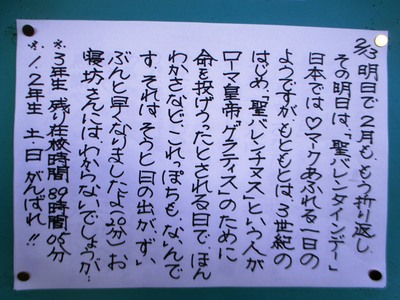 2/13 明日で2月も、もう折り返し
その明日は、「聖バレンタインデー」
日本では♡マークあふれる一日の
ようですが、もともとは、3世紀の
はじめ「聖バレンチヌス」という人が
ローマ皇帝「グラティス」のために
命を投げうったとされる日で、ほん
わかさなど、これっぽちも、ないんで
す。それは、そうと、日の出が、ず、い
ぶんと早くなりましたよ（20分）お
寝坊さんには、わからないでしょうが、
※3年生 残り在校時間 89時間05分
※1.2年生 土・日がんばれ!!